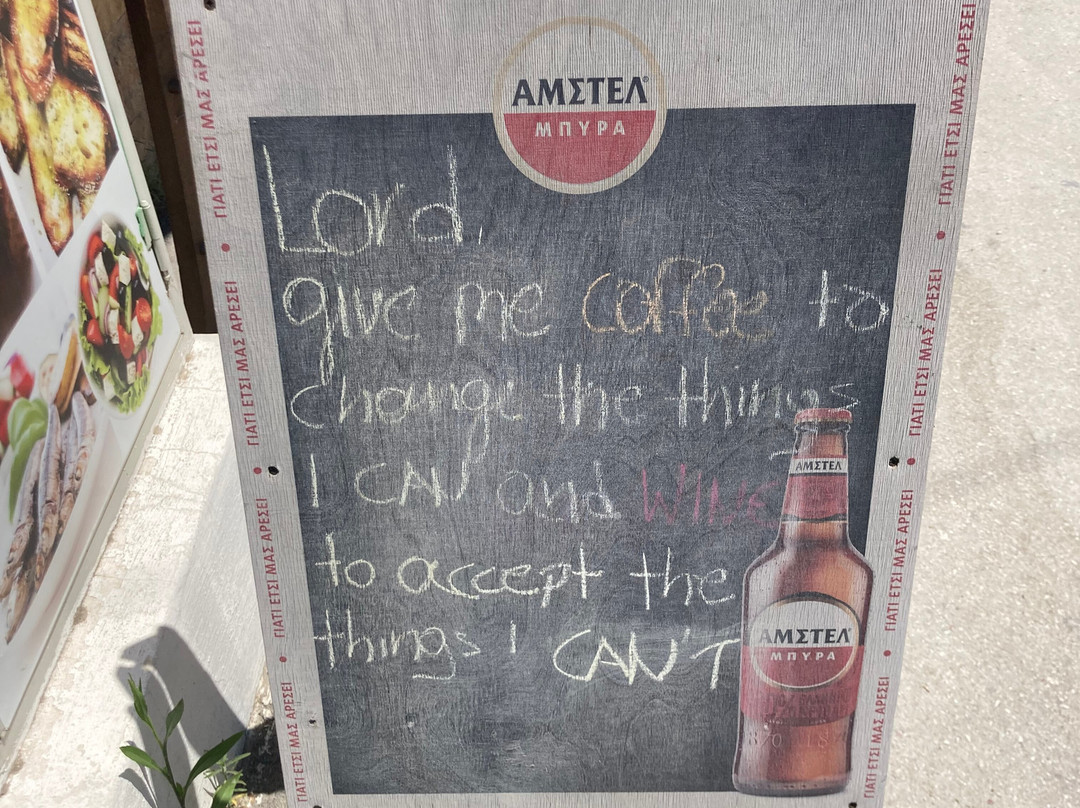 ΑΜΣΤΕΛ®
ΜΠΥΡΑ
Lord,
give me coffee to
change the things
I CAN and WINE
to accept the
things I CAN'T
ΑΜΣΤΕΛ
ΑΜΣΤΕΛ
ΜΠΥΡΑ
ΓΙΑΤΙ ΕΤΣΙ ΜΑΣ ΑΡΕΣΕΙ • ΓΙΑΤΙ ΕΤΣΙ ΜΑΣ ΑΡΕΣΕΙ • ΓΙΑΤΙ ΕΤΣΙ ΜΑΣ ΑΡΕΣΕΙ • ΓΙΑΤΙ ΕΤΣΙ ΜΑΣ ΑΡΕΣΕΙ
ΓΙΑΤΙ ΕΤΣΙ ΜΑΣ ΑΡΕΣΕΙ • ΓΙΑΤΙ ΕΤΣΙ ΜΑΣ ΑΡΕΣΕΙ • ΓΙΑΤΙ ΕΤΣΙ ΜΑΣ ΑΡΕΣΕΙ • ΓΙΑΤΙ ΕΤΣΙ ΜΑΣ ΑΡΕΣΕΙ